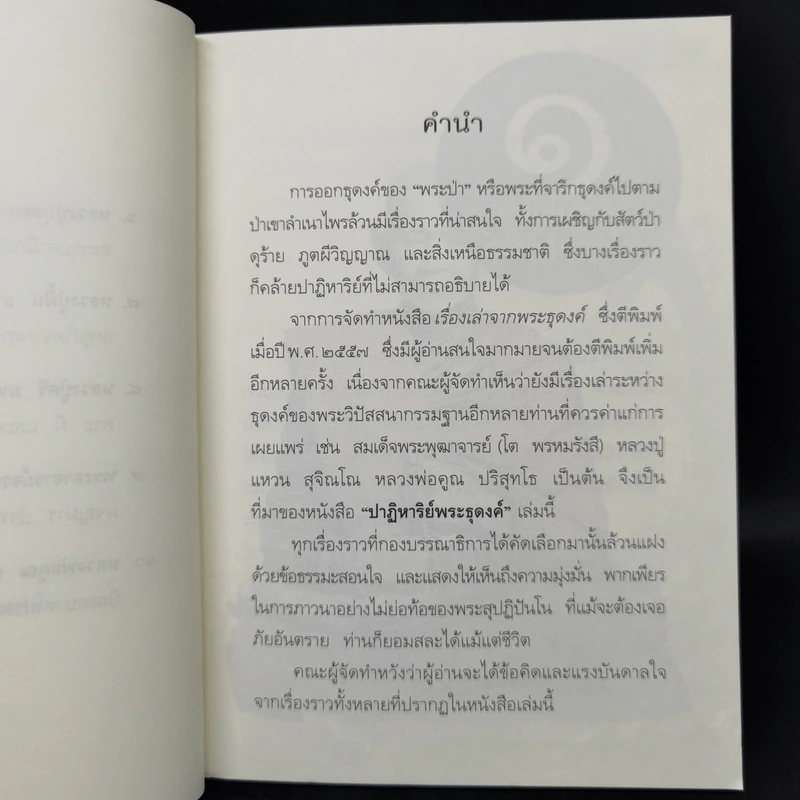 คำนำ
การออกธุดงค์ของ “พระป่า” หรือพระที่จาริกธุดงค์ไปตาม
ป่าเขาลำเนาไพรล้วนมีเรื่องราวที่น่าสนใจ ทั้งการเผชิญกับสัตว์ป่า
ดุร้าย ภูตผีวิญญาณ และสิ่งเหนือธรรมชาติ ซึ่งบางเรื่องราว
ก็คล้ายปาฏิหาริย์ที่ไม่สามารถอธิบายได้
จากการจัดทำหนังสือ เรื่องเล่าจากพระธุดงค์ ซึ่งตีพิมพ์
เมื่อปี พ.ศ. ๒๕๕๗ ซึ่งมีผู้อ่านสนใจมากมายจนต้องตีพิมพ์เพิ่ม
อีกหลายครั้ง เนื่องจากคณะผู้จัดทำเห็นว่ายังมีเรื่องเล่าระหว่าง
ธุดงค์ของพระวิปัสสนากรรมฐานอีกหลายท่านที่ควรค่าแก่การ
เผยแพร่ เช่น สมเด็จพระพุฒาจารย์ (โต พรหมรังสี) หลวงปู่
แหวน สุจิณโณ หลวงพ่อคูณ ปริสุทโธ เป็นต้น จึงเป็น
ที่มาของหนังสือ “ปาฏิหาริย์พระธุดงค์” เล่มนี้
ทุกเรื่องราวที่กองบรรณาธิการได้คัดเลือกมานั้นล้วนแฝง
ด้วยข้อธรรมะสอนใจ และแสดงให้เห็นถึงความมุ่งมั่น พากเพียร
ในการภาวนาอย่างไม่ย่อท้อของพระสุปฏิปันโน ที่แม้จะต้องเจอ
ภัยอันตราย ท่านก็ยอมสละได้แม้แต่ชีวิต
คณะผู้จัดทำหวังว่าผู้อ่านจะได้ข้อคิดและแรงบันดาลใจ
จากเรื่องราวทั้งหลายที่ปรากฏในหนังสือเล่มนี้